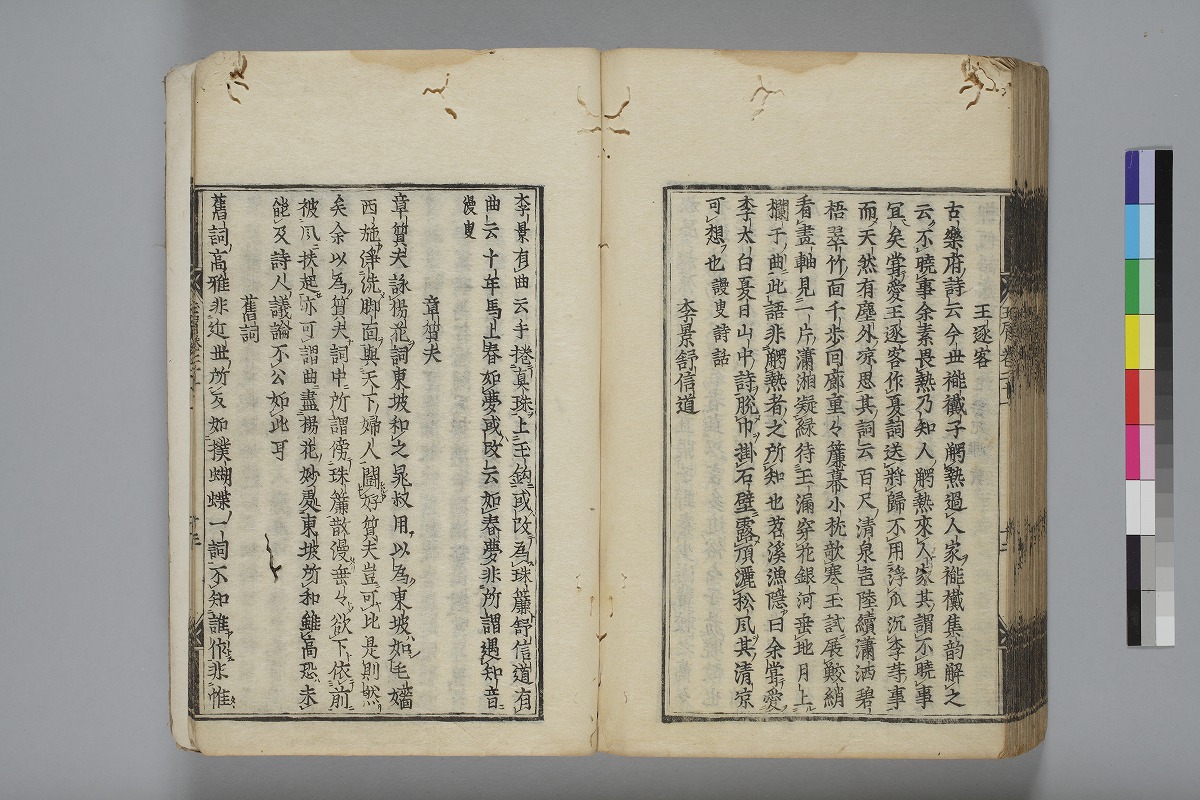 王逐客
古樂府詩云今世褦襶子觸熱過人家褦襶集韵解之
云不曉事余素畏熱乃知人觸熱來入家其謂不曉事
冝矣嘗愛王逐客作夏詞送將歸不用浮瓜沉李等事
而天然有塵外凉思其詞云百尺清泉声陸續瀟洒碧
梧翠竹面千歩回廊重々簾幕小枕欹寒玉試展鮫綃
看畫軸見一片瀟湘凝緑待玉漏穿花銀河垂地月上
欄干曲此語非觸熱者之所知也苕溪漁隱曰余嘗愛
李太白夏日山中詩脱巾掛石壁露頂灑松風其清凉
可想也謾叟詩話
李景舒信道
李景有曲云手捲真珠上玉鈎或改為珠簾舒信道有
曲云十年馬上春如夢或改云如春夢非所謂遇知音
謾叟
章質夫
章質夫詠楊花詞東坡和之晁叔用以為東坡如毛嬙
西施淨洗脚面與天下婦人鬪好質夫豈可比是則然
矣余以為質夫詞中所謂傍珠簾散漫垂々欲下依前
被風扶起亦可謂曲盡楊花妙處東坡所和雖高恐未
能及詩人議論不公如此耳
舊詞
舊詞高雅非近世所及如撲蝴蝶一詞不知誰作非惟